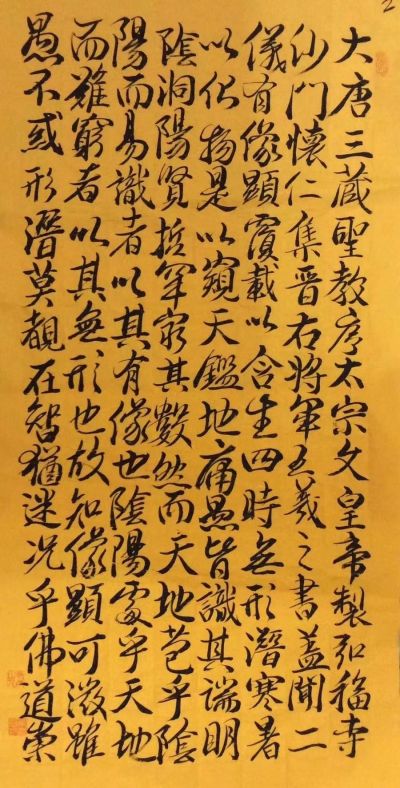 大唐三蔵聖教序太宗文皇帝製弘福寺
沙門懷仁集晋右將軍王羲之書蓋聞二
儀有像顯覆載以含生四時無形潛寒暑
以化物是以窺天鑑地庸愚皆識其端明
陰洞陽賢哲罕窮其數然而天地苞乎陰
陽而易識者以其有像也陰陽處乎天地
而難窮者以其無形也故知像顯可徵雖
愚不惑形潛莫覩在智猶迷況乎佛道崇
2